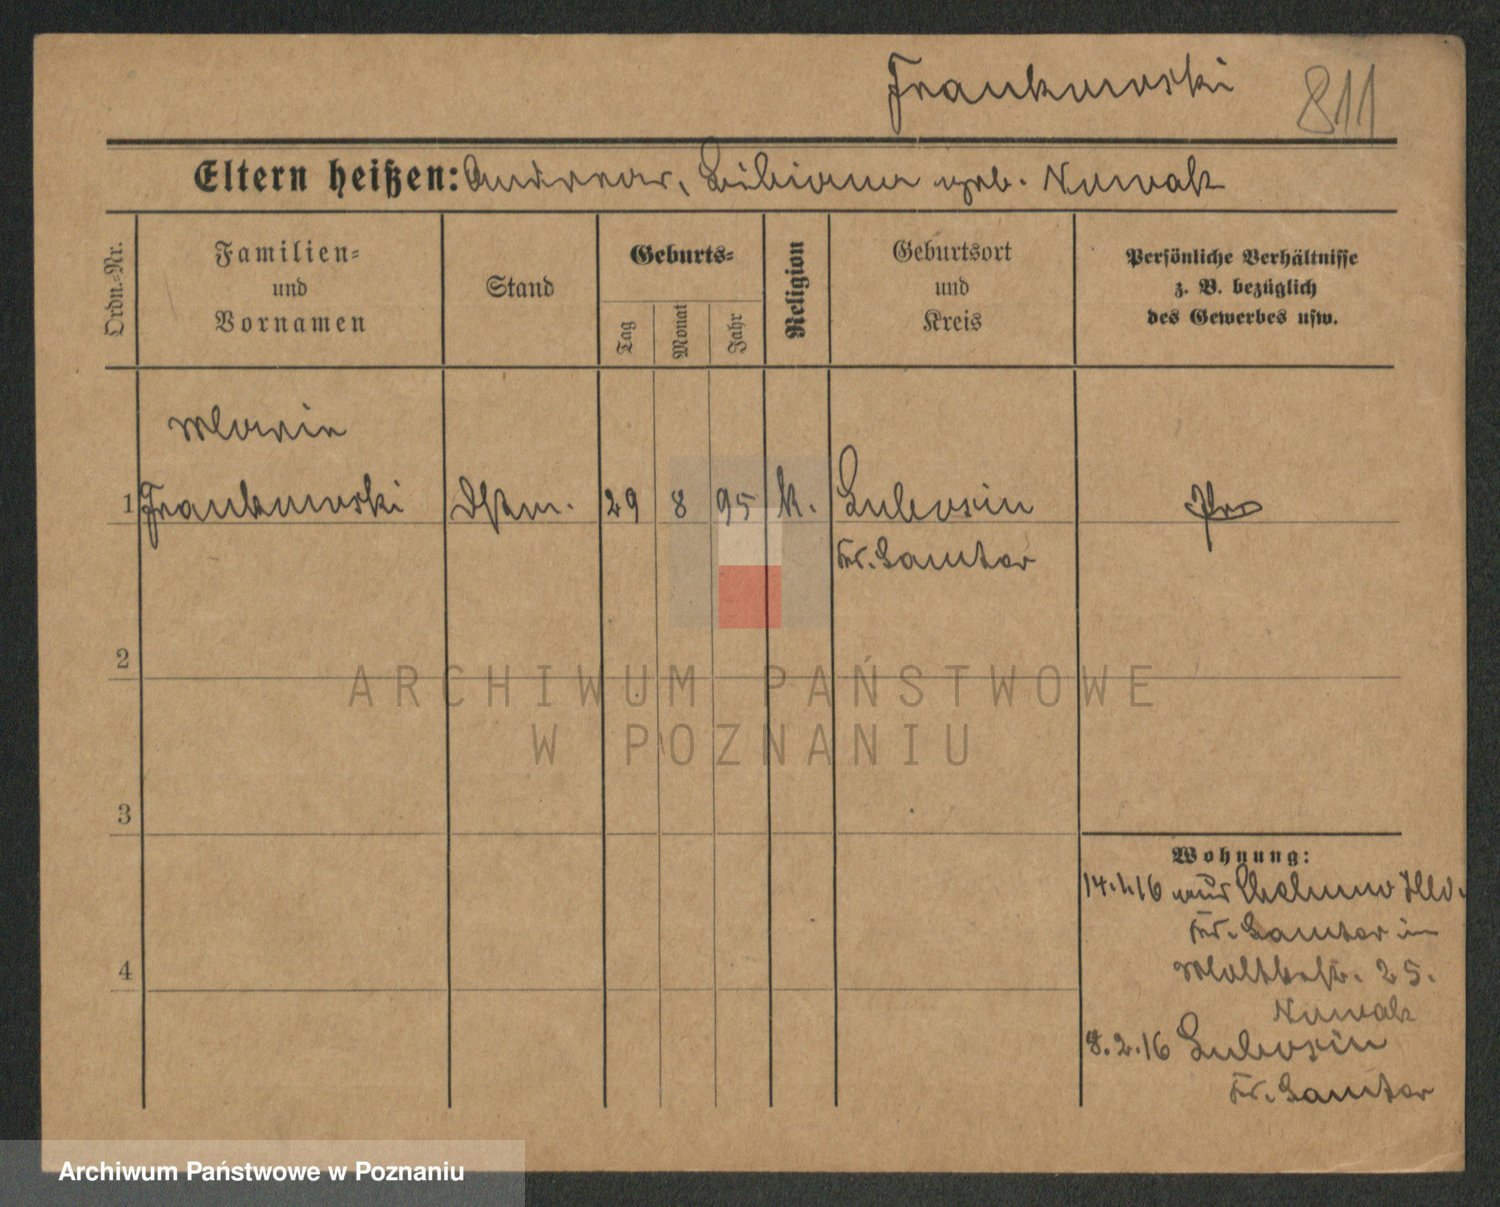 Frankowski 811
Eltern heißen: Andreas, Bibiana geb. Nowak
Ordn.-Nr.
Familien-
und
Vornamen
Stand
Geburts-
Tag
Monat
Jahr
Religion
Geburtsort
und
Kreis
Persönliche Verhältnisse
z. B. bezüglich
des Gewerbes usw.
Marie
1 Frankowski 29 8 95 k. Lubosin
Kr. Samter
2
3
4
Wohnung:
14.1.16 aus
Kr. Samter in
Moltkestr. 25.
Nowak
8.2.16 Lubosin
Kr. Samter
ARCHIWUM PAŃSTWOWE
W POZNANIU
Archiwum Państwowe w Poznaniu